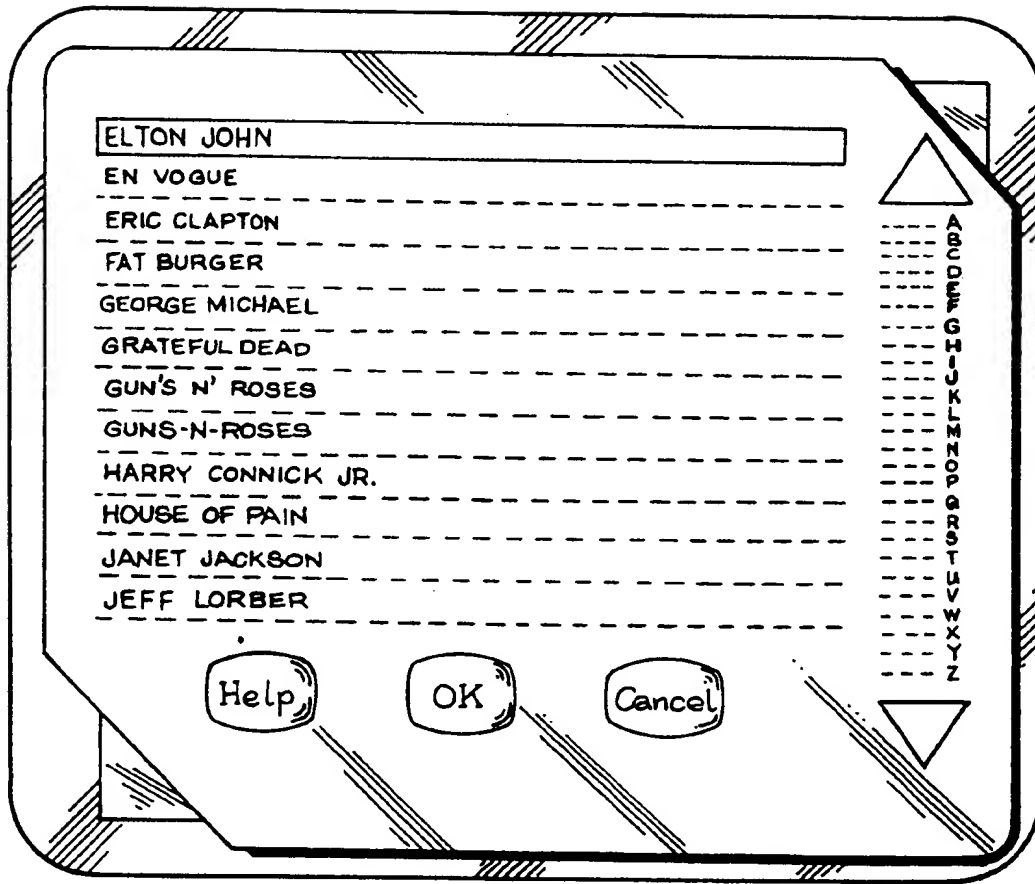 ELTON JOHN
EN VOGUE
ERIC CLAPTON
FAT BURGER
GEORGE MICHAEL
GRATEFUL DEAD
GUN'S N' ROSES
GUNS-N-ROSES
HARRY CONNICK JR.
HOUSE OF PAIN
JANET JACKSON
JEFF LORBER
A
B
C
D
E
F
G
H
I
J
K
L
M
N
O
P
Q
R
S
T
U
V
W
X
Y
Z
Help OK Cancel